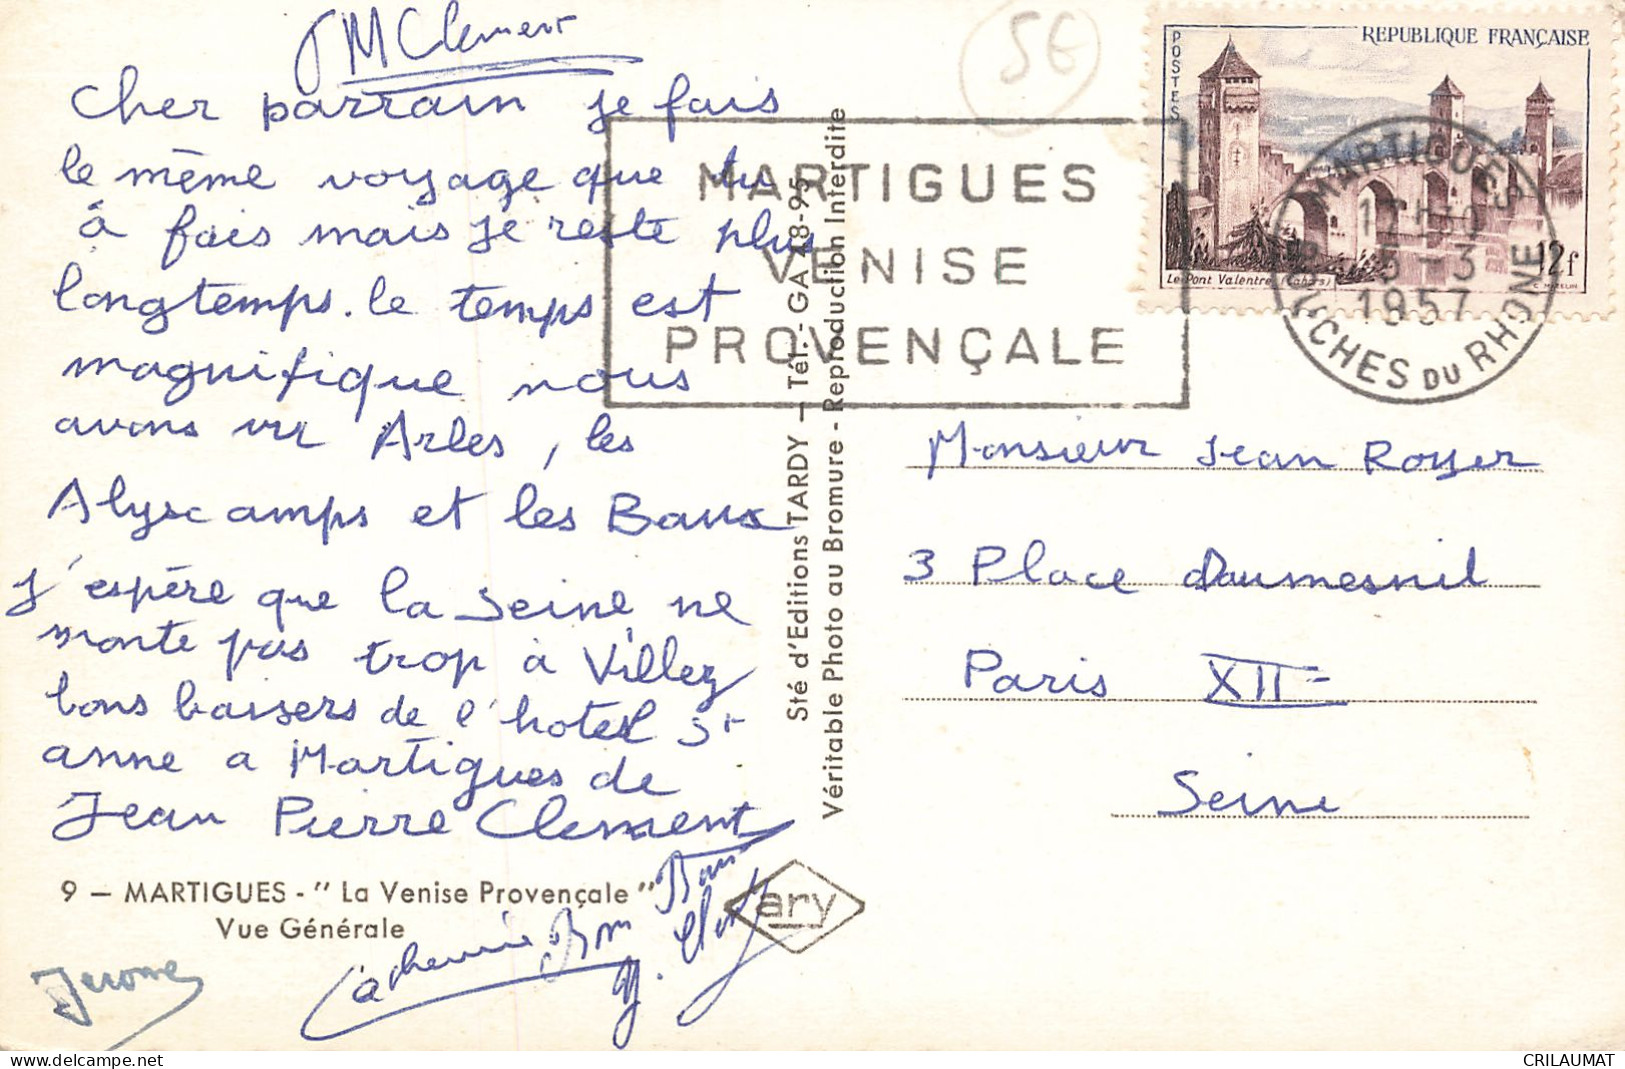 JM Clement
cher parrain je fais
le même voyage que tu
à fais mais je reste plus
longtemps. le temps est
magnifique nous
avons vu Arles, les
Alyscamps et les Baux
J'espère que la seine ne
monte pas trop à Villez
bons baisers de l'hotel St
anne a Martigues de
Jean Pierre Clement
9 — MARTIGUES - " La Venise Provençale "
Vue Générale
Jerome
Catherine
ary
Sté d'Editions TARDY — Tél. - GA 78-95
Véritable Photo au Bromure - Reproduction Interdite
5€
MARTIGUES
VENISE
PROVENÇALE
POSTES
REPUBLIQUE FRANÇAISE
Le Pont Valentré (Cahors)
12f
C. MAZELIN
MARTIGUES
5-3
1957
BOUCHES DU RHONE
Monsieur Jean Royer
3 Place Daumesnil
Paris XII=
Seine
CRILAUMAT